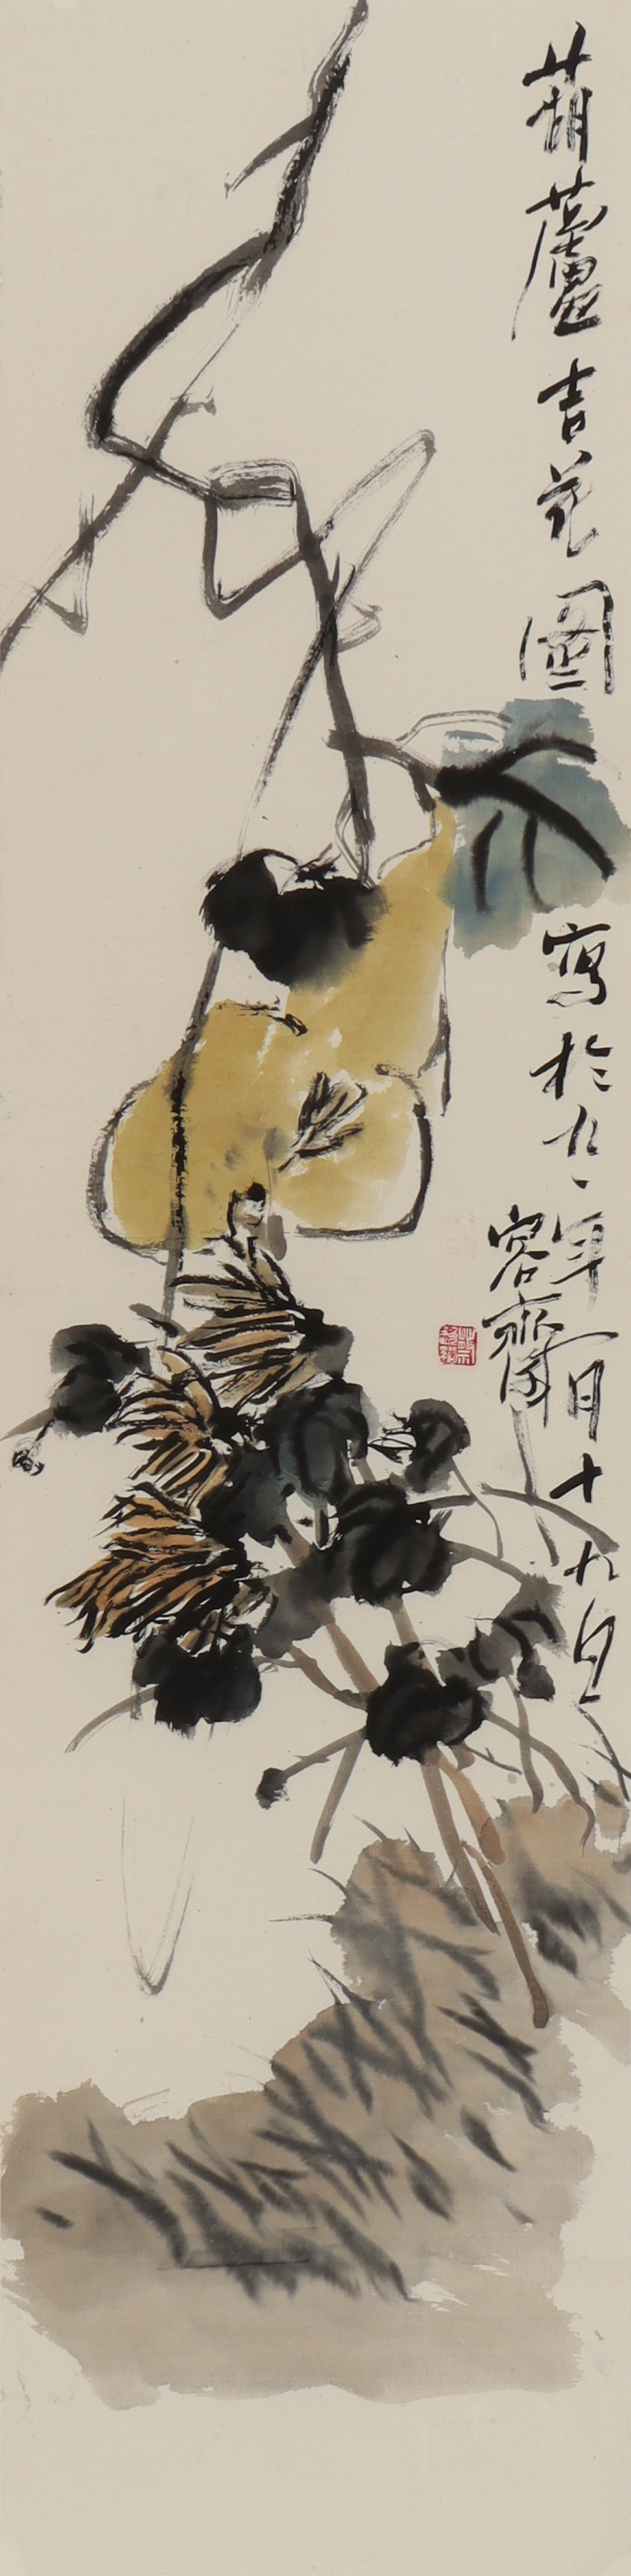 葫蘆吉花圖 寫於九一年一月十九日
容齋